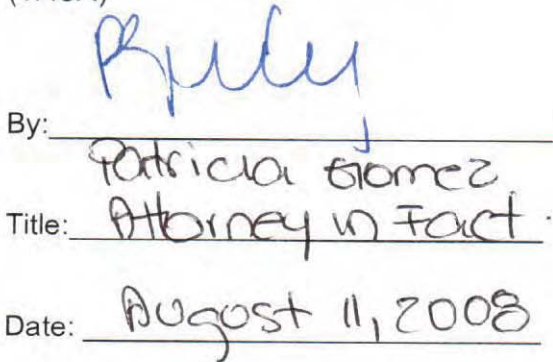 By:
Patricia Gomez
Title: Attorney in Fact.
Date: August 11, 2008